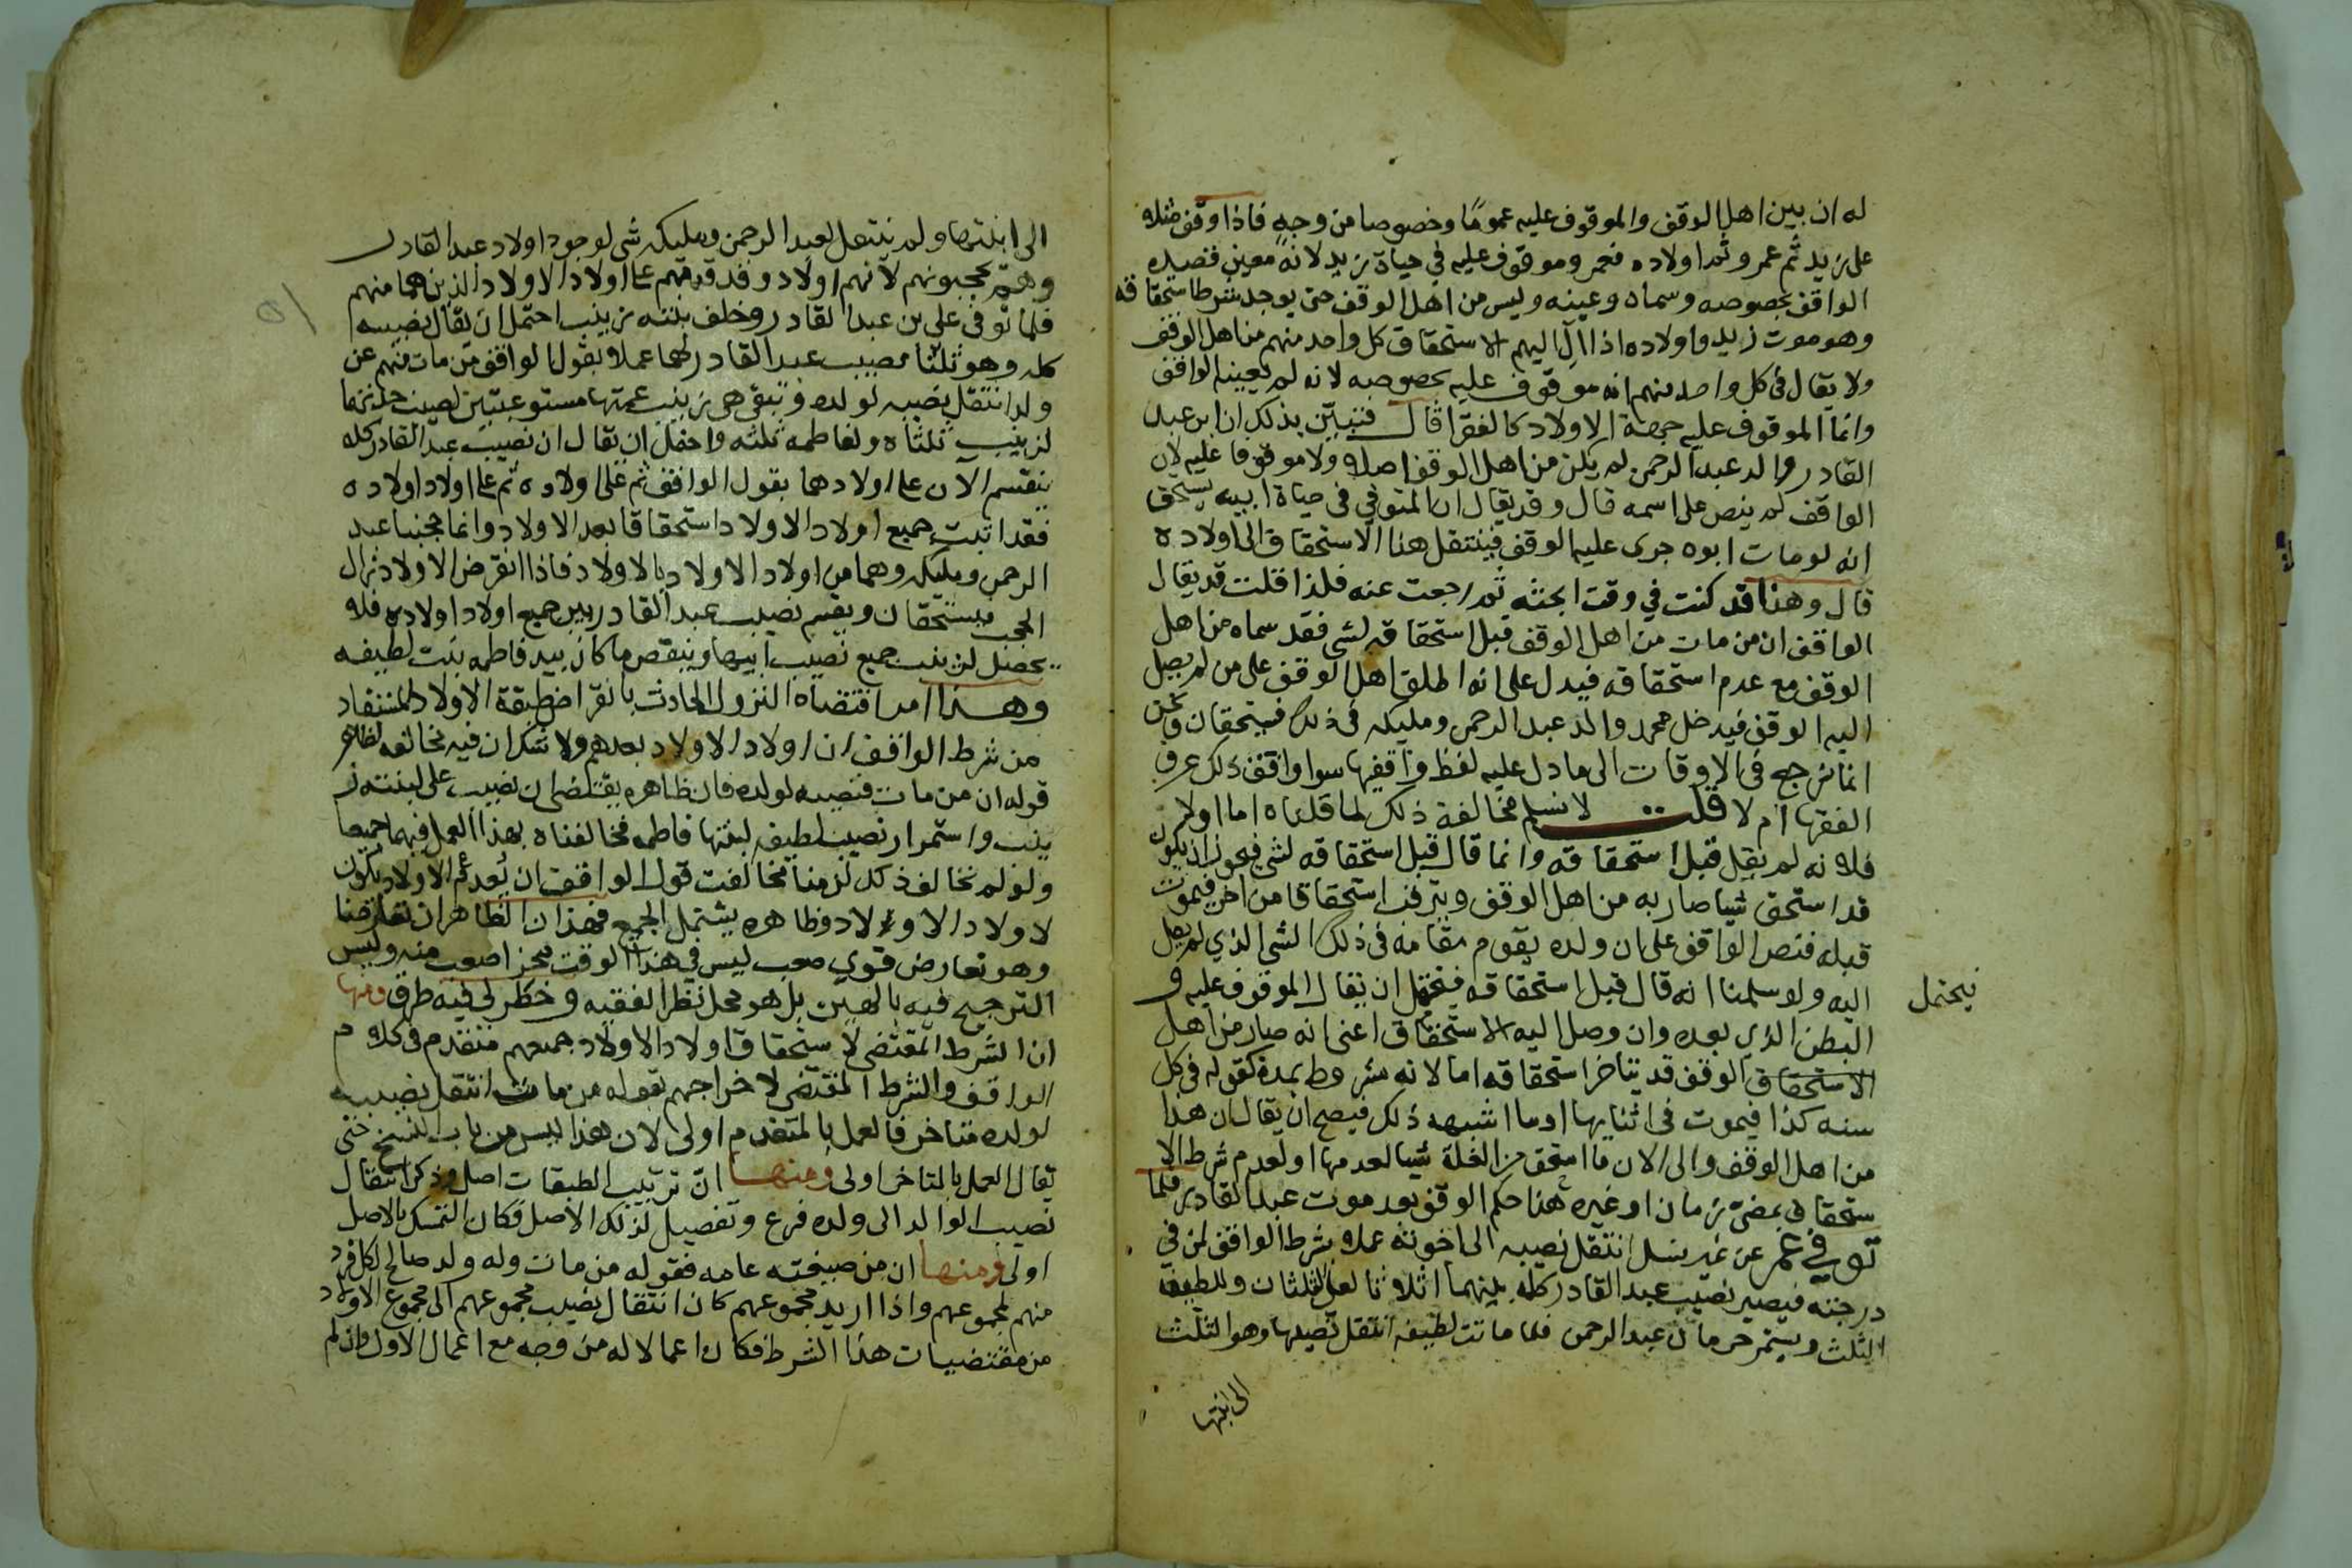 له ان بين اهل الوقف والموقوف عليه عموما وخصوصا من وجه فاذا وقف مثلا
على زيد ثم عمرو ثم اولاده فعمرو موقوف عليه في حياة زيد لانه معين قصده
الواقف بخصوصه وسماه وعينه وليس من اهل الوقف حتى يوجد شرط استحقاقه
وهو موت زيد واولاده اذا آل اليهم الاستحقاق كل واحد منهم من اهل الوقف
ولا يقال في كل واحد منهم انه موقوف عليه بخصوصه لانه لم يعينه الواقف
وانما الموقوف عليه جهة الاولاد كالفقرا قال فتبيّن بذلك ان ابن عبد
القادر والد عبد الرحمن لم يكن من اهل الوقف اصلا ولا موقوفا عليه لان
الواقف لم ينص على اسمه قال وقد يقال ان المتوفي في حياة ابيه يستحق
انه لو مات ابوه جرى عليه الوقف فينتقل هذا الاستحقاق الى اولاده
قال وهذا قد كنت في وقت ابحثه ثم رجعت عنه فلذا قلت قد يقال
الواقف ان من مات من اهل الوقف قبل استحقاقه لشي فقد سماه من اهل
الوقف مع عدم استحقاقه فيدل على انه اطلق اهل الوقف على من لم يصل
اليه الوقف فيدخل محمد والد عبد الرحمن ومليكه في ذلك فيستحقان ونحن
انما نرجع في الاوقات الى ما دل عليه لفظ واقفيها سوا وافق ذلك عرف
الفقها ام لا قلت لا نسلم مخالفة ذلك لما قلناه اما اولا
فلانه لم يقل قبل استحقاقه وانما قال قبل استحقاقه لشي فيجوز ان يكون
قد استحق شيا صار به من اهل الوقف ويترقب استحقاقا من اخر فيموت
قبله فنص الواقف على ان ولده يقوم مقامه في ذلك الشي الذي لم يصل
اليه ولو سلمنا انه قال قبل استحقاقه فيحتمل ان يقال الموقوف عليه و
يحتمل
البطن الذي بعده وان وصل اليه الاستحقاق اعنى انه صار من اهل
الاستحقاق الوقف قد يتاخر استحقاقه اما لانه مشروط بمدة كقوله في كل
سنه كذا فيموت في اثنايها او ما اشبهه ذلك فيصح ان يقال ان هذا
من اهل الوقف والى الان ما استحق من الغلة شيا لعدمها او لعدم شرط الا
ستحقاق بمضيّ زمان او غيره هذا حكم الوقف بعد موت عبد القادر فلما
توفي عمر عن غير نسل انتقل نصيبه الى اخوته عملا بشرط الواقف لمن في
درجته فيصير نصيب عبد القادر كله بينهما اثلاثا لعلي الثلثان وللطيفه
الثلث ويستمر حرمان عبد الرحمن فلما ماتت لطيفه انتقل نصيبها وهو الثلث
الى ابنتها
الى ابنتها ولم ينتقل لعبد الرحمن ومليكه شي لوجود اولاد عبد القادر
وهم يحجبونهم لانهم اولاد وقد قدمهم على اولاد الاولاد الذين هما منهم
فلما توفي علي بن عبد القادر وخلف بنته زينب احتمل ان يقال نصيبه
كله وهو ثلثا نصيب عبد القادر لهما عملا بقول الواقف من مات منهم عن
ولد انتقل نصيبه لولده وتبقى هي وبنت عمتها مستوعبتين لنصيب جدتهما
لزينب ثلثاه ولفاطمة ثلثه واحتمل ان يقال ان نصيب عبد القادر كله
ينقسم الان على اولادهما بقول الواقف ثم على اولاده ثم على اولاد اولاده
فقد اثبت جميع اولاد الاولاد استحقاقا بعد الاولاد وانما حجبنا عبد
الرحمن ومليكه وهما من اولاد الاولاد بالاولاد فاذا انقرض الاولاد زال
الحجب فيستحقان ويقسم نصيب عبد القادر بين جميع اولاد اولاده فلا
يحصل لزينب جميع نصيب ابيها وينقص ما كان بيد فاطمه بنت لطيفه
وهذا امر اقتضاه النزول الحادث بانقراض طبقة الاولاد المستفاد
من شرط الواقف ان اولاد الاولاد بعدهم ولا شك ان فيه مخالفه لظاهر
قوله ان من مات فنصيبه لولده فان ظاهره يقتضى ان نصيب على لبنته ز
ينب واستمرار نصيب لطيفه لبنتها فاطمه فخالفناه بهذا العمل فيهما جميعا
ولو لم نخالف ذلك لزمنا مخالفت قول الواقف ان بعدهم الاولاد يكون
لاولاد الاولاد فظاهره يشتمل الجميع فهذان الظاهران تعارضا
وهو تعارض قوي صعب ليس في هذا الوقت محز اصعب منه وليس
الترجيح فيه بالهين بل هو محل نظر الفقيه وخطر لي فيه طرق ومنها
ان الشرط المقتضى لاستحقاق اولاد الاولاد جميعهم متقدم في كلام
الواقف والشرط المقتضى لاخراجهم بقوله من مات انتقل نصيبه
لولده متاخر فالعمل بالمتقدم اولى لان هذا ليس من باب النسخ حتى
يقال العمل بالمتاخر اولى ومنها انّ ترتيب الطبقات اصل وذكر انتقال
نصيب الوالد الى ولده فرع وتفصيل لذلك الاصل فكان التمسك بالاصل
اولى ومنها ان من صيغته عامه فقوله من مات وله ولد صالح لكل فرد
منهم لمجموعهم واذا اريد مجموعهم كان انتقال نصيب مجموعهم الى مجموع الاولاد
من مقتضيات هذا الشرط فكان اعمالا له من وجه مع اعمال الاول وان لم